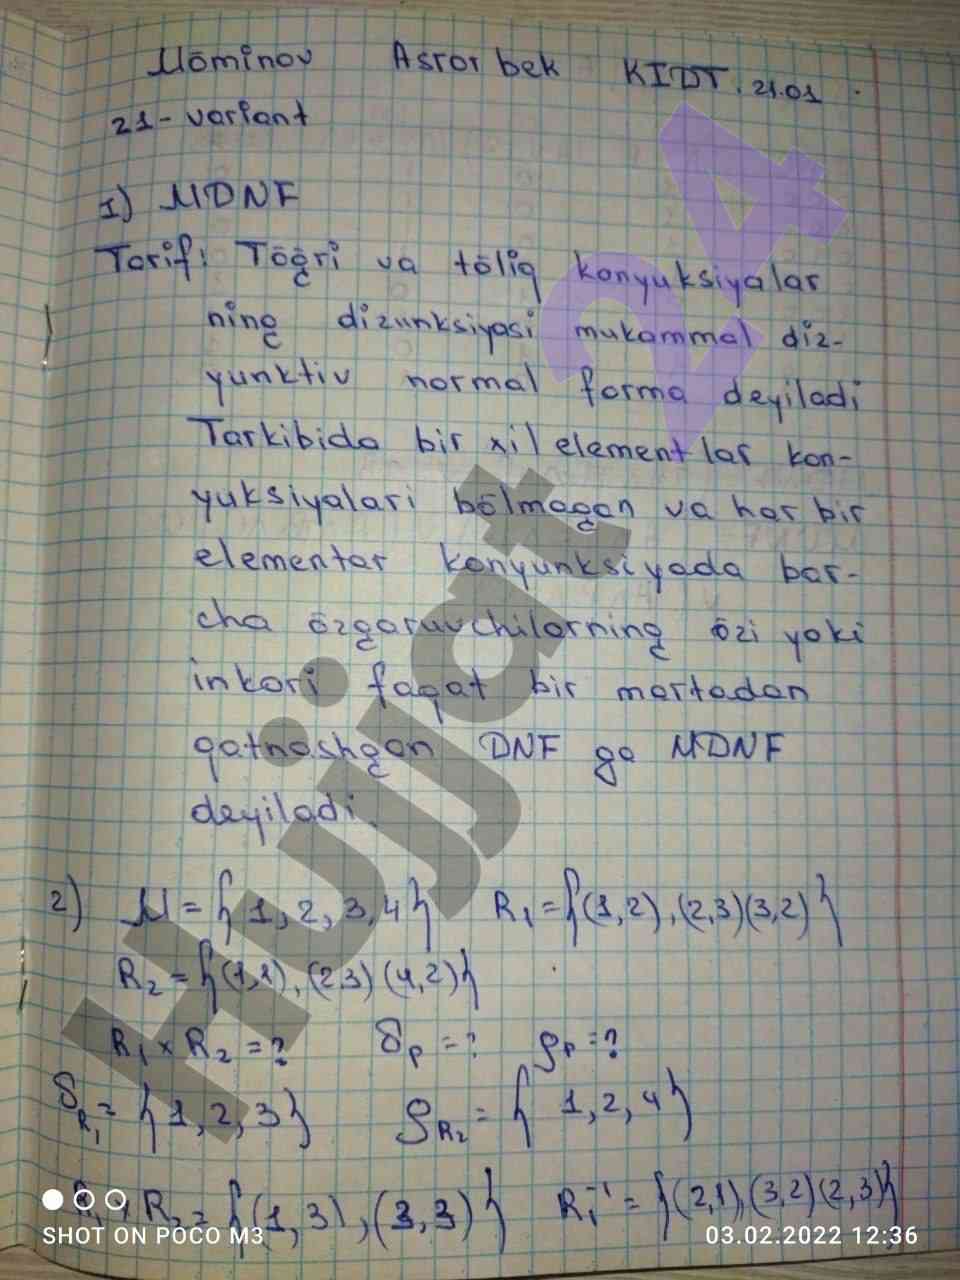 Mōminov Asrorbek KIDT. 21.01.
21-variant
1) MDNF
Tarif: Tōğri va tōliq konyuksiyalar
ning dizunksiyasi mukammal diz-
yunktiv normal forma deyiladi
Tarkibida bir xil elementlar kon-
yuksiyalari bōlmagan va har bir
elementar konyunksiyada bar-
cha ōzgaruvchilarning ōzi yoki
inkori faqat bir martadan
qatnashgan DNF ga MDNF
deyiladi.
2) M = { 1, 2, 3, 4 } R₁ = {(1,2), (2,3) (3,2)}
R₂ = {(1,1), (2,3) (4,2)}
R₁ × R₂ = ? δₚ = ? ρₚ = ?
δ_R₁ = {1, 2, 3} ρ_R₂ = { 1, 2, 4 }
R₂ = {(1,3), (3,3)} R₁⁻¹ = {(2,1), (3,2) (2,3)}
SHOT ON POCO M3
03.02.2022 12:36
Hujjat 24